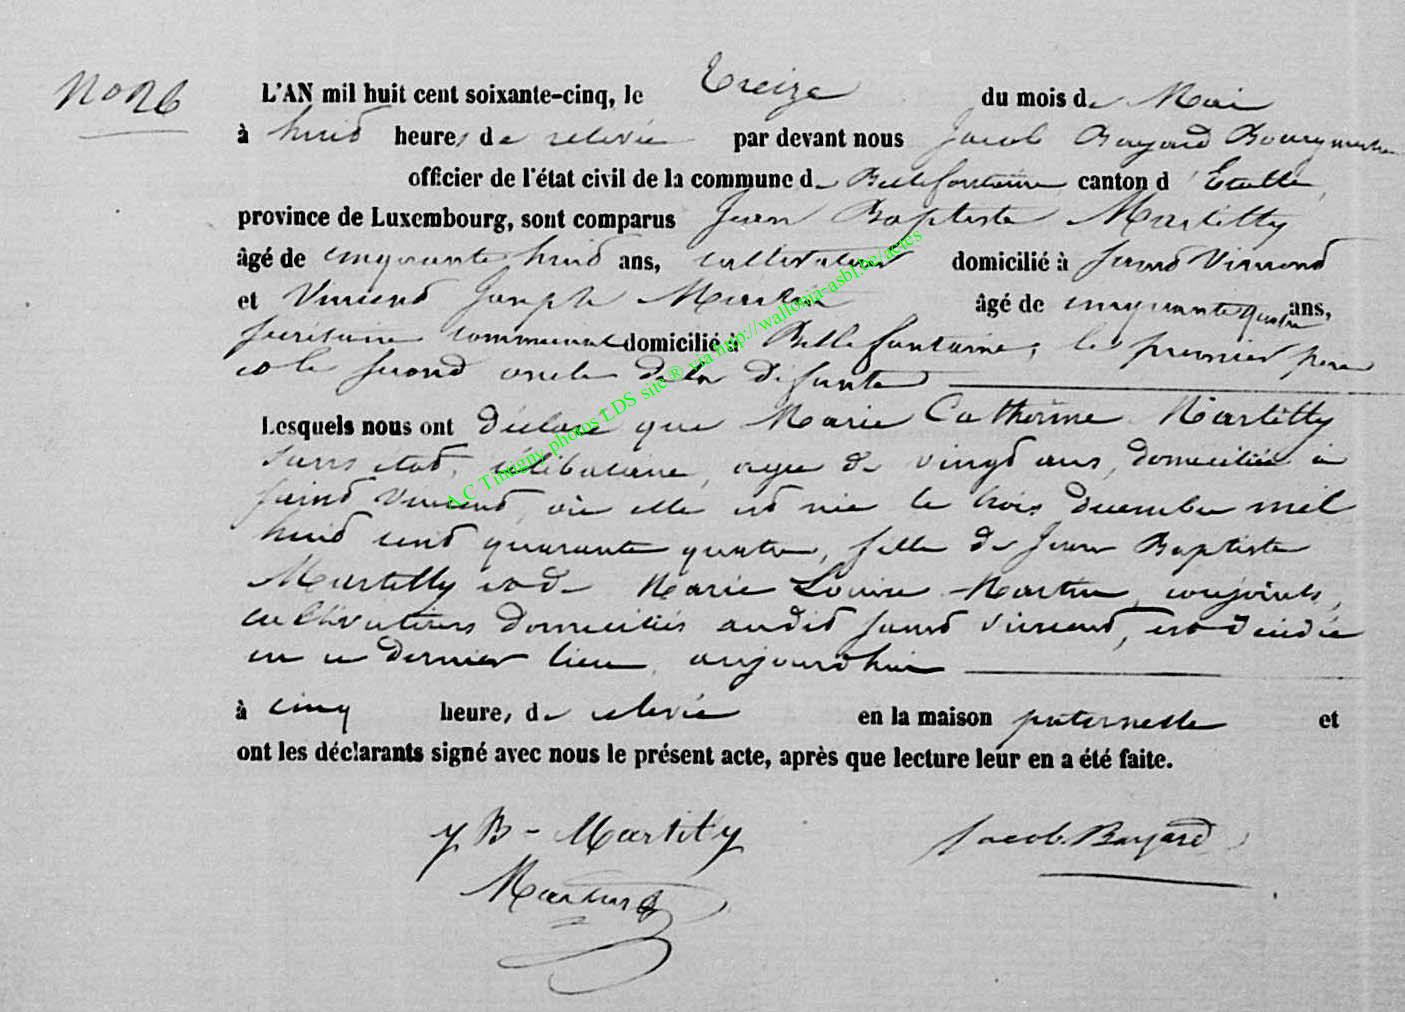 No 26
L'AN mil huit cent soixante-cinq, le Treize du mois de Mai
à huit heures de relevée par devant nous Jacob Bayard Bourgmestre
officier de l'état civil de la commune de Bellefontaine canton d'Etalle,
province de Luxembourg, sont comparus Jean Baptiste Martilly
âgé de cinquante huit ans, cultivateur domicilié à Saint Vincent
et Vincent Joseph Martin âgé de cinquante quatre ans,
secrétaire communal domicilié à Bellefontaine, le premier père
et le second oncle de la défunte
Lesquels nous ont déclaré que Marie Catherine Martilly
sans état, célibataire, agée de vingt ans, domiciliée à
Saint Vincent, où elle est née le trois décembre mil
huit cent quarante quatre, fille de Jean Baptiste
Martilly et de Marie Louise Martin, conjoints,
cultivateurs domiciliés audit Saint Vincent, est décédée
en ce dernier lieu, aujourd'hui
à cinq heures de relevée en la maison paternelle et
ont les déclarants signé avec nous le présent acte, après que lecture leur en a été faite.
J B - Martilly Jacob Bayard
Martin
A.C Tintigny photos LDS site ® via http://wallonia-asbl.be/actes